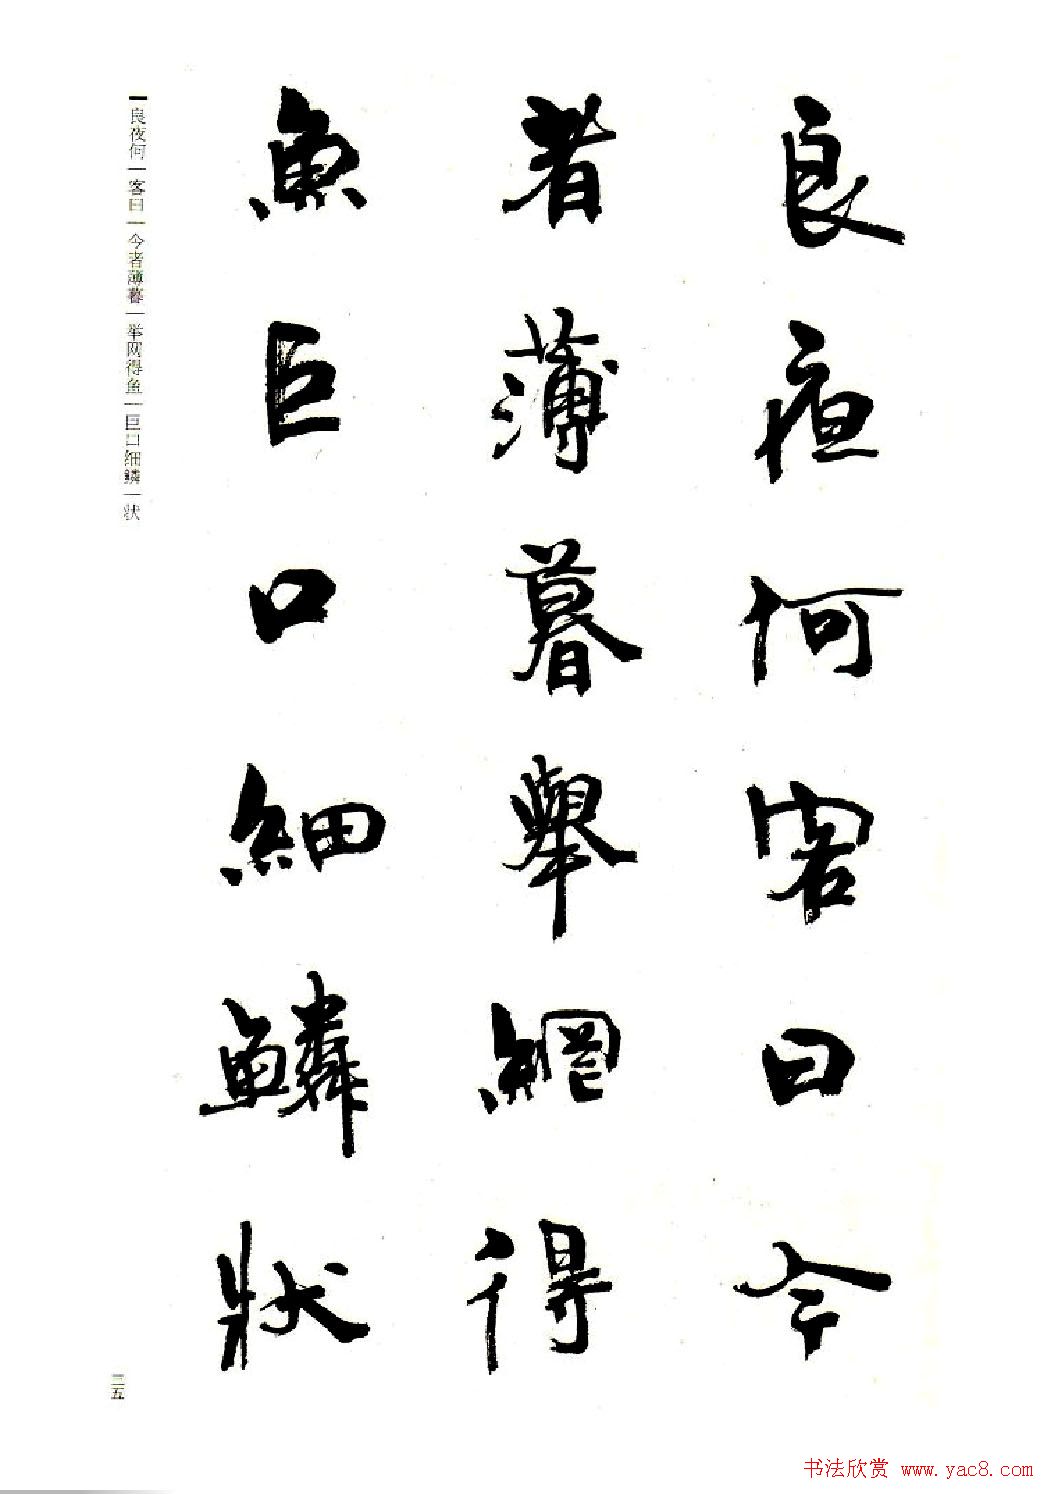 良夜何客曰今
者薄暮舉網得
魚巨口細鱗狀
一良夜何一客曰一今者薄暮一举网得鱼一巨口细鳞一状
三五
书法欣赏 www.yac8.com